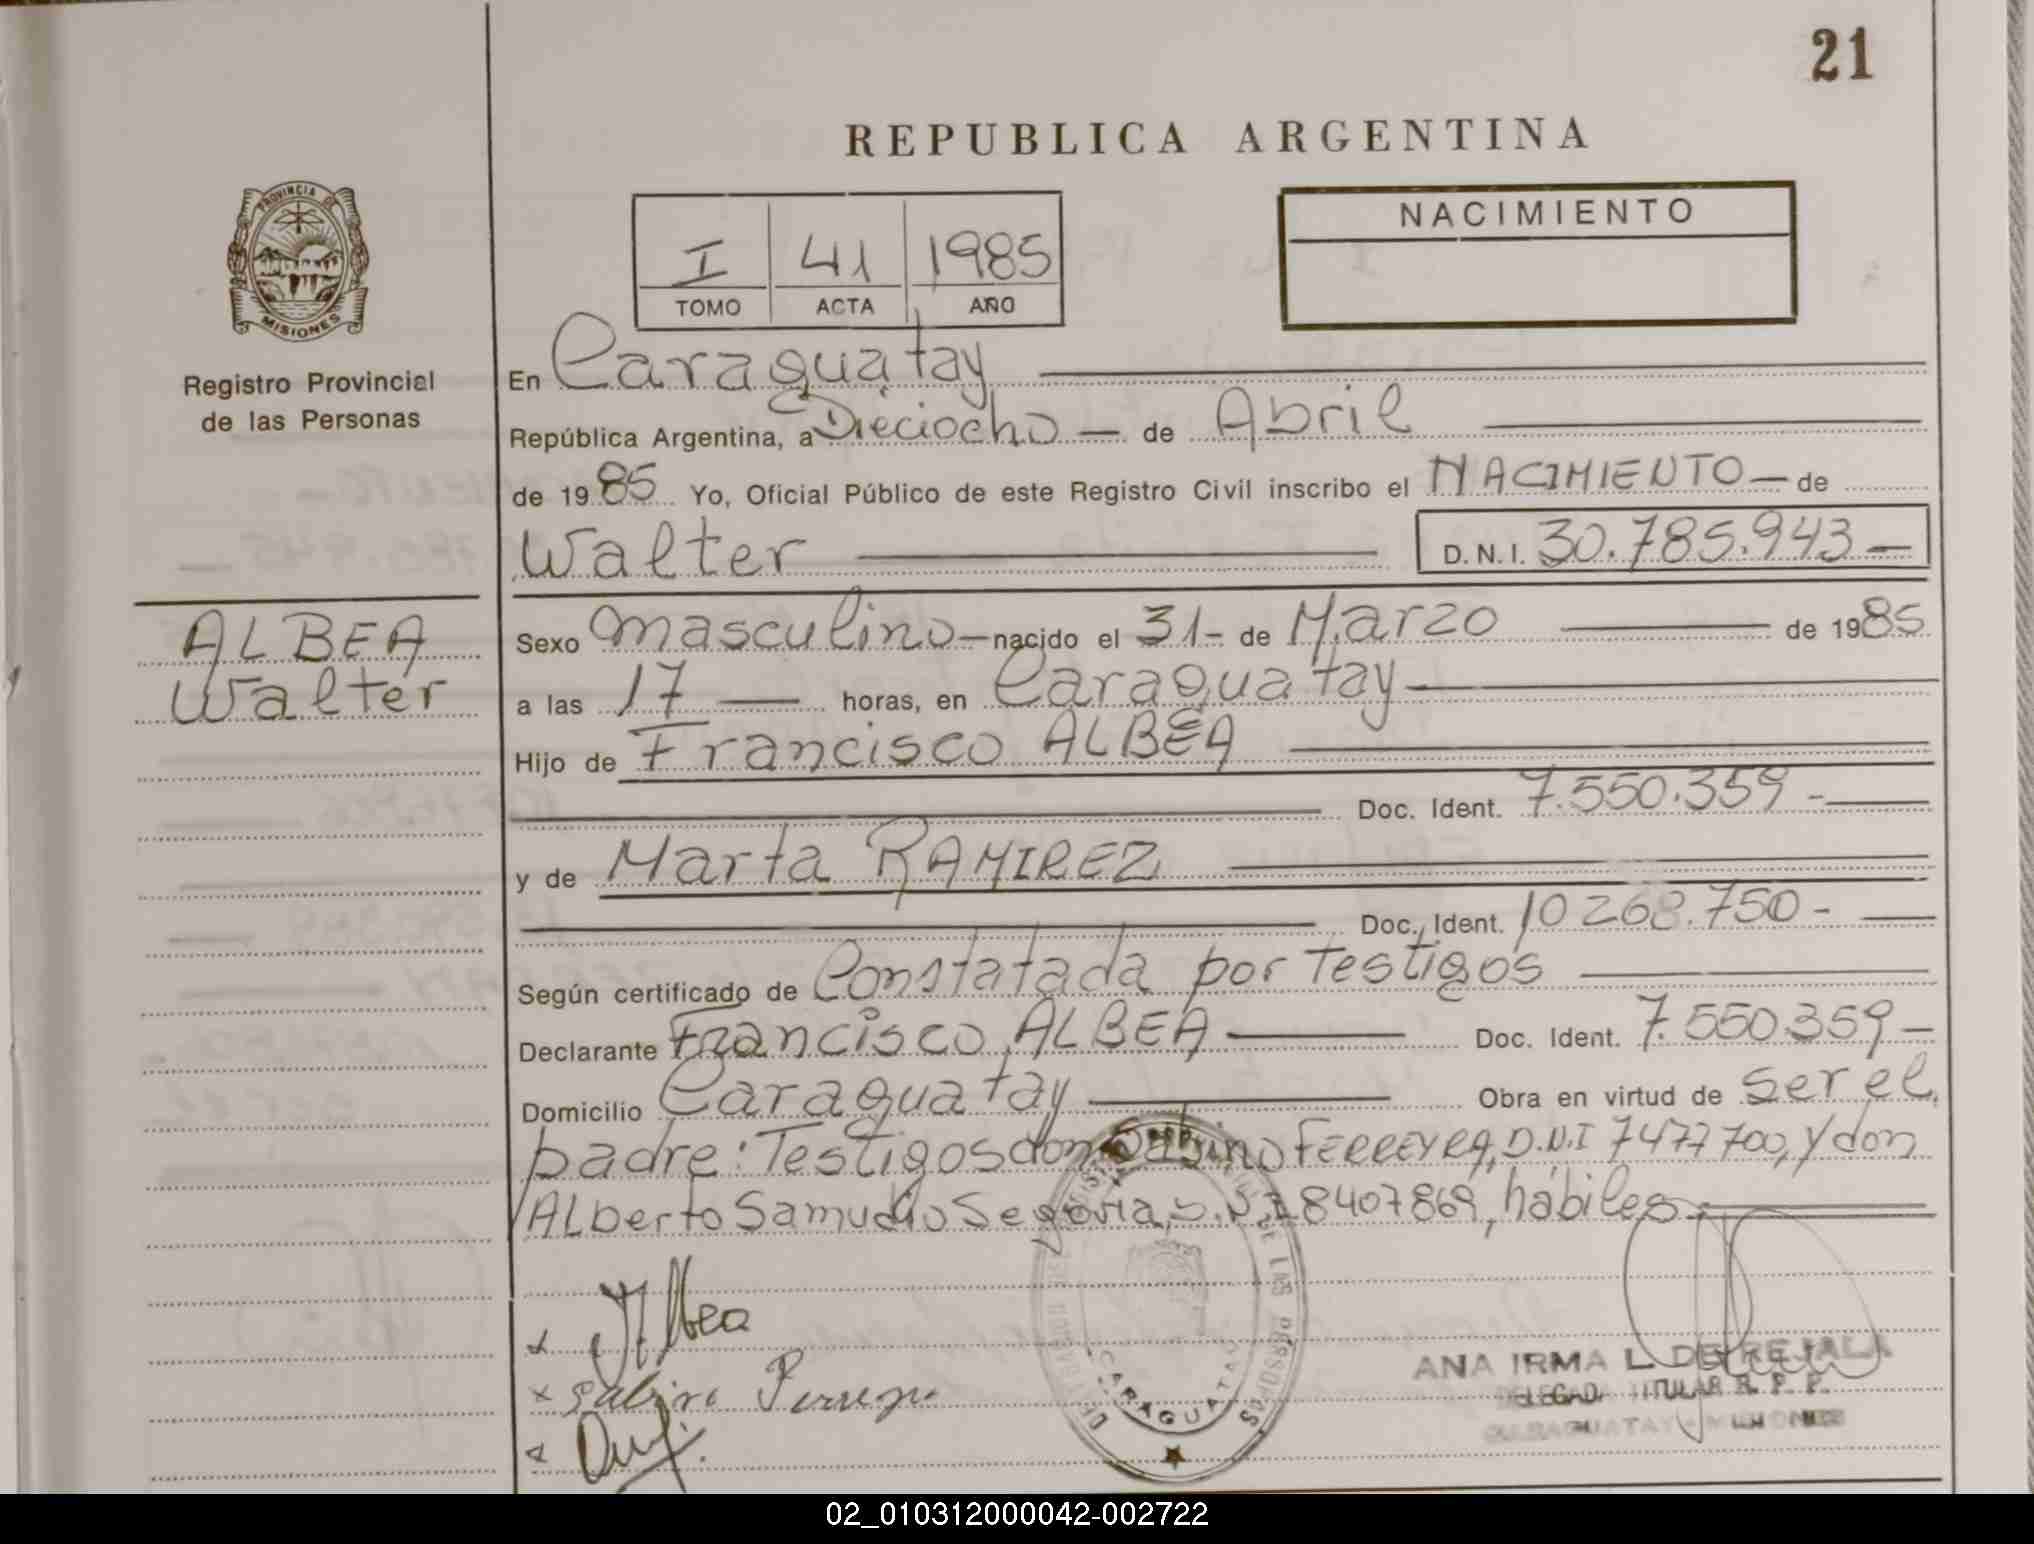 21
REPUBLICA ARGENTINA
PROVINCIA DE
MISIONES
Registro Provincial
de las Personas
I 41 1985
TOMO ACTA AÑO
NACIMIENTO
En Caraguatay
República Argentina, a Dieciocho — de Abril
de 1985 Yo, Oficial Público de este Registro Civil inscribo el NACIMIENTO — de
Walter D.N.I. 30.785.943 —
ALBEA
Walter
Sexo masculino — nacido el 31 - de Marzo de 1985
a las 17 — horas, en Caraguatay
Hijo de Francisco ALBEA
Doc. Ident. 7.550.359 -
y de Marta RAMIREZ
Doc. Ident. 10268.750 -
Según certificado de Constatada por Testigos
Declarante Francisco ALBEA Doc. Ident. 7.550359 —
Domicilio Caraguatay Obra en virtud de ser el
padre: Testigos don Sabino FERREYRA, D.N.I 7477700, y don
ALberto Samudio Segovia, D.N.I 8407869, hábiles
x Albea
x Sabino
x
CARAGUATAY
ANA IRMA L. DE REJALA
DELEGADA TITULAR R. P. P.
CARAGUATAY - MISIONES
02_010312000042-002722